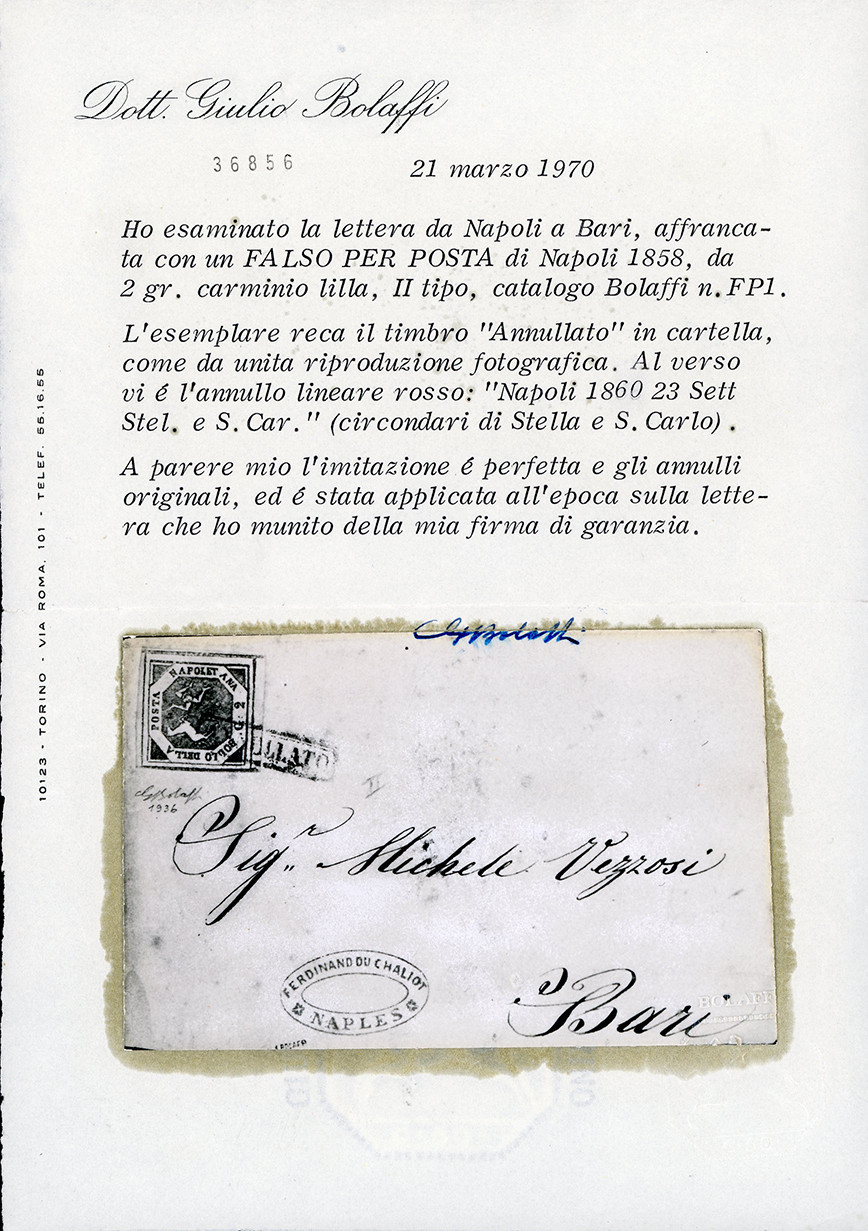 Dott. Giulio Bolaffi
36856
21 marzo 1970
Ho esaminato la lettera da Napoli a Bari, affranca-
ta con un FALSO PER POSTA di Napoli 1858, da
2 gr. carminio lilla, II tipo, catalogo Bolaffi n.FP1.
L'esemplare reca il timbro "Annullato" in cartella,
come da unita riproduzione fotografica. Al verso
vi é l'annullo lineare rosso: "Napoli 1860 23 Sett
Stel. e S.Car." (circondari di Stella e S.Carlo).
A parere mio l'imitazione é perfetta e gli annulli
originali, ed é stata applicata all'epoca sulla lette-
ra che ho munito della mia firma di garanzia.
10123 - TORINO - VIA ROMA, 101 - TELEF. 55.16.55
GBolaffi
POSTA NAPOLETANA
BOLLO DELLA
G. 2
LLATO
GBolaffi
1936
II
Sigr. Michele Vezzosi
FERDINAND DU CHALIOT
NAPLES
Bari
BOLAFFI